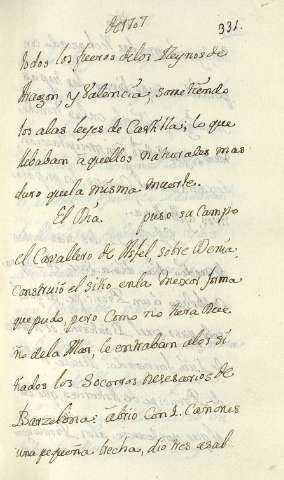 de 1707
331.
todos los fueros de los Reynos de
Aragon, y Valencia, sometiendo
los alas leyes de Castilla; lo que
llebaban aquellos naturales mas
duro que la misma muerte.
El Dia. puso su Campo
el Cavallero de Asfel, sobre Denia:
construió el sitio, enla mexor forma
que pudo, pero como no hera Dueño
dela Mar, le entraban alos si
tiados los Socorros nesesarios de
Barzelona: abrio con 2. Cañones
una pequeña brecha, dio tres asal